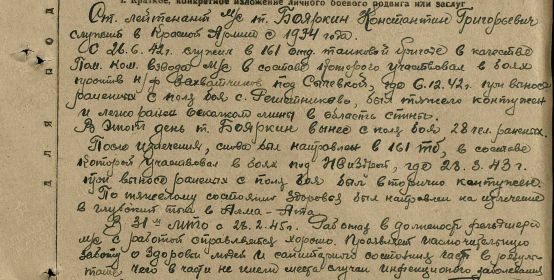 1. Краткое, конкретное изложение личного боевого подвига или заслуг
Ст. лейтенант м/с т. Бояркин Константин Григорьевич
служит в Красной Армии с 1934 года.
С 26.6.42г. служил в 161 отд. танковой бригаде в качестве
Пом. ком. взвода м/с в составе которого участвовал в боях
против н/ф захватчиков под Сычевкой, где 6.12.42г. при выносе
раненых с поля боя с. Решетниково, был тяжело контужен
и легко ранен осколком мины в область спины.
В этот день т. Бояркин вынес с поля боя 28 чел. раненых.
После излечения, снова был направлен в 161 тб, в составе
которой участвовал в боях под где 23.3.43г.
при выносе раненых с поля боя был вторично контужен.
По тяжелому состоянию здоровья был направлен на излечение
в глубокий тыл в Алма-Ата.
В 31 с 28.2.45г. Работая в должности фельдшера
м/с с работой справляется хорошо. Проявляет исключительную
заботу о здоровьи людей и санитарного состояния части в резуль-
тате чего в части не имели места случаи инфекционного заболевания
для под